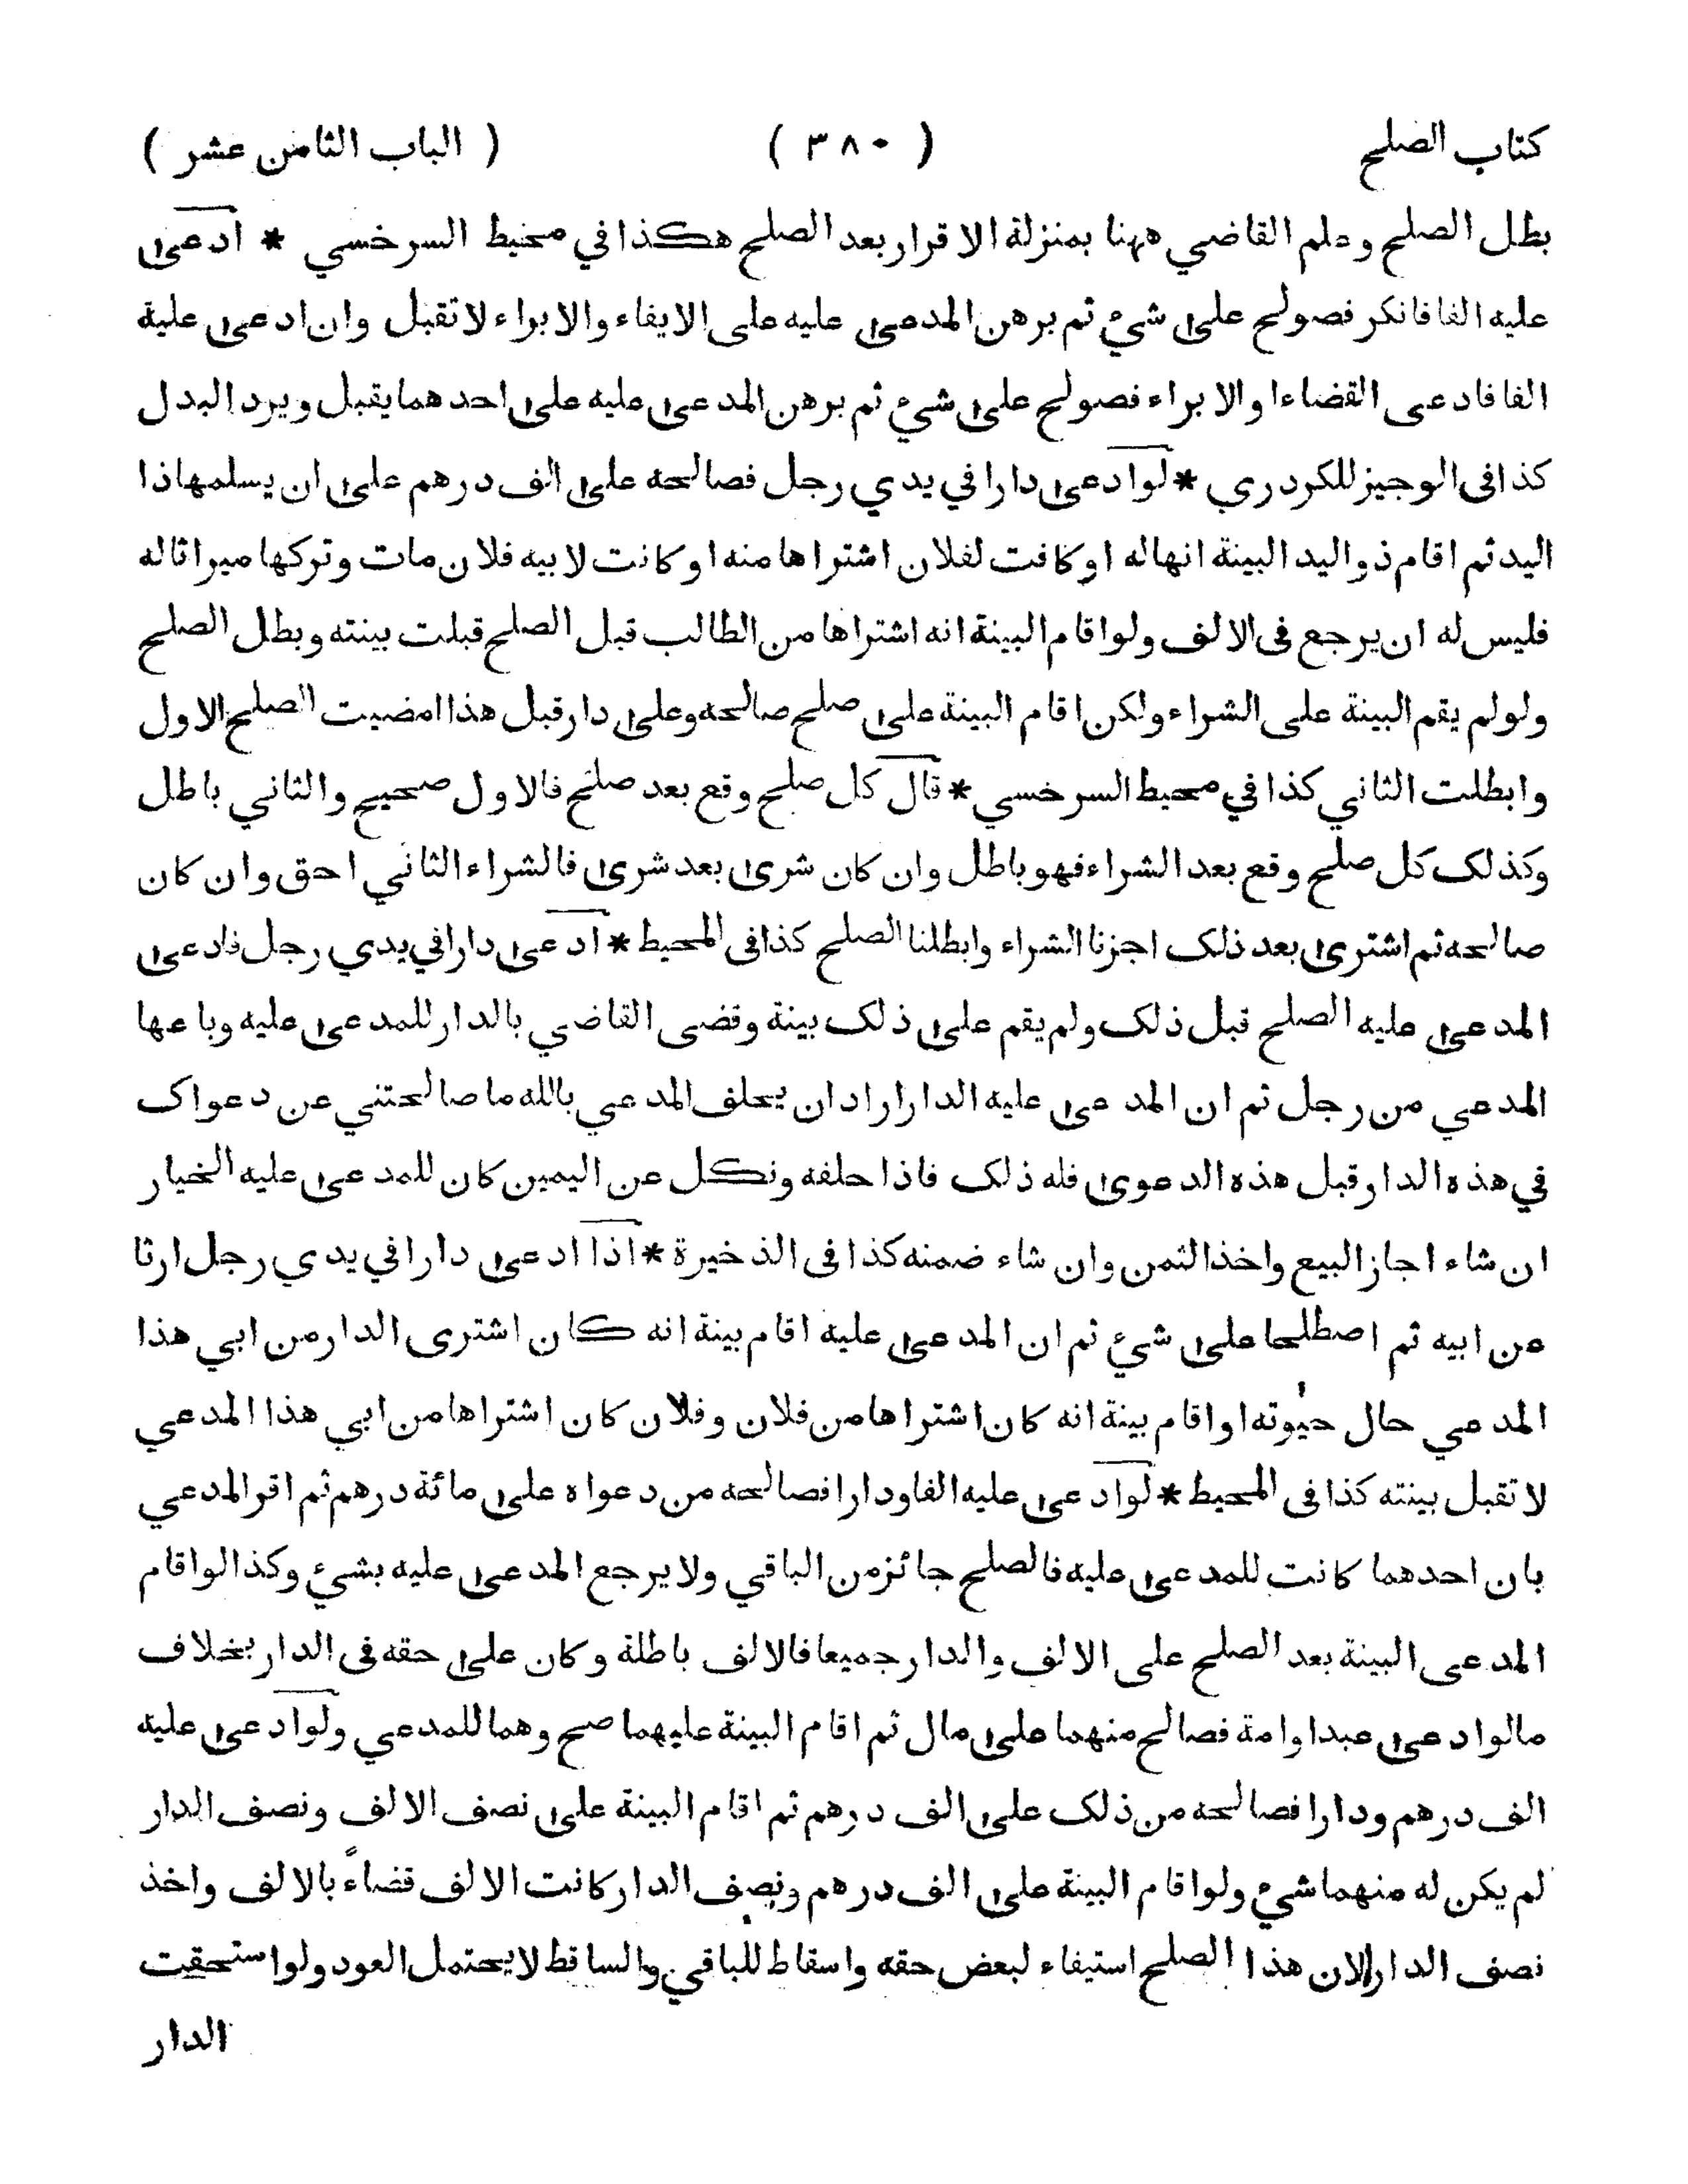 كتاب الصلح ( ٣٨٠ ) ( الباب الثامن عشر )
بطل الصلح وعلم القاضي ههنا بمنزلة الاقرار بعد الصلح هكذا في محيط السرخسي * ادعى
عليه الفا فانكر فصولح على شيء ثم برهن المدعى عليه على الايفاء والابراء لا تقبل وان ادعى عليه
الفا فادعى القضاء او الابراء فصولح على شيء ثم برهن المدعى عليه على احدهما يقبل ويرد البدل
كذا في الوجيز للكردري * لو ادعى دارا في يدي رجل فصالحه على الف درهم على ان يسلمها ذا
اليد ثم اقام ذو اليد البينة انها له او كانت لفلان اشتراها منه او كانت لابيه فلان مات وتركها ميراثا له
فليس له ان يرجع في الالف ولو اقام البينة انه اشتراها من الطالب قبل الصلح قبلت بينته وبطل الصلح
ولو لم يقم البينة على الشراء ولكن اقام البينة على صلح صالحه وعلى دار قبل هذا امضيت الصلح الاول
وابطلت الثاني كذا في محيط السرخسي * قال كل صلح وقع بعد صلح فالاول صحيح والثاني باطل
وكذلك كل صلح وقع بعد الشراء فهو باطل وان كان شرى بعد شرى فالشراء الثاني احق وان كان
صالحه ثم اشترى بعد ذلك اجزنا الشراء وابطلنا الصلح كذا في المحيط * ادعى دارا في يدي رجل فادعى
المدعى عليه الصلح قبل ذلك ولم يقم على ذلك بينة وقضى القاضي بالدار للمدعى عليه وباعها
المدعي من رجل ثم ان المدعى عليه الدار اراد ان يحلف المدعي بالله ما صالحتني عن دعواك
في هذه الدار قبل هذه الدعوى فله ذلك فاذا حلفه ونكل عن اليمين كان للمدعى عليه الخيار
ان شاء اجاز البيع واخذ الثمن وان شاء ضمنه كذا في الذخيرة * اذا ادعى دارا في يدي رجل ارثا
عن ابيه ثم اصطلحا على شيء ثم ان المدعى عليه اقام بينة انه كان اشترى الدار من ابي هذا
المدعي حال حيوته او اقام بينة انه كان اشتراها من فلان وفلان كان اشتراها من ابي هذا المدعي
لا تقبل بينته كذا في المحيط * لو ادعى عليه الفا ودارا فصالحه من دعواه على مائة درهم ثم اقر المدعي
بان احدهما كانت للمدعى عليه فالصلح جائز من الباقي ولا يرجع المدعى عليه بشيء وكذا لو اقام
المدعى البينة بعد الصلح على الالف والدار جميعا فالالف باطلة وكان على حقه في الدار بخلاف
ما لو ادعى عبدا وامة فصالح منهما على مال ثم اقام البينة عليهما صح وهما للمدعي ولو ادعى عليه
الف درهم ودارا فصالحه من ذلك على الف درهم ثم اقام البينة على نصف الالف ونصف الدار
لم يكن له منهما شيء ولو اقام البينة على الف درهم ونصف الدار كانت الالف قضاءً بالالف واخذ
نصف الدار لان هذا الصلح استيفاء لبعض حقه واسقاط للباقي والساقط لا يحتمل العود ولو استحقت
الدار